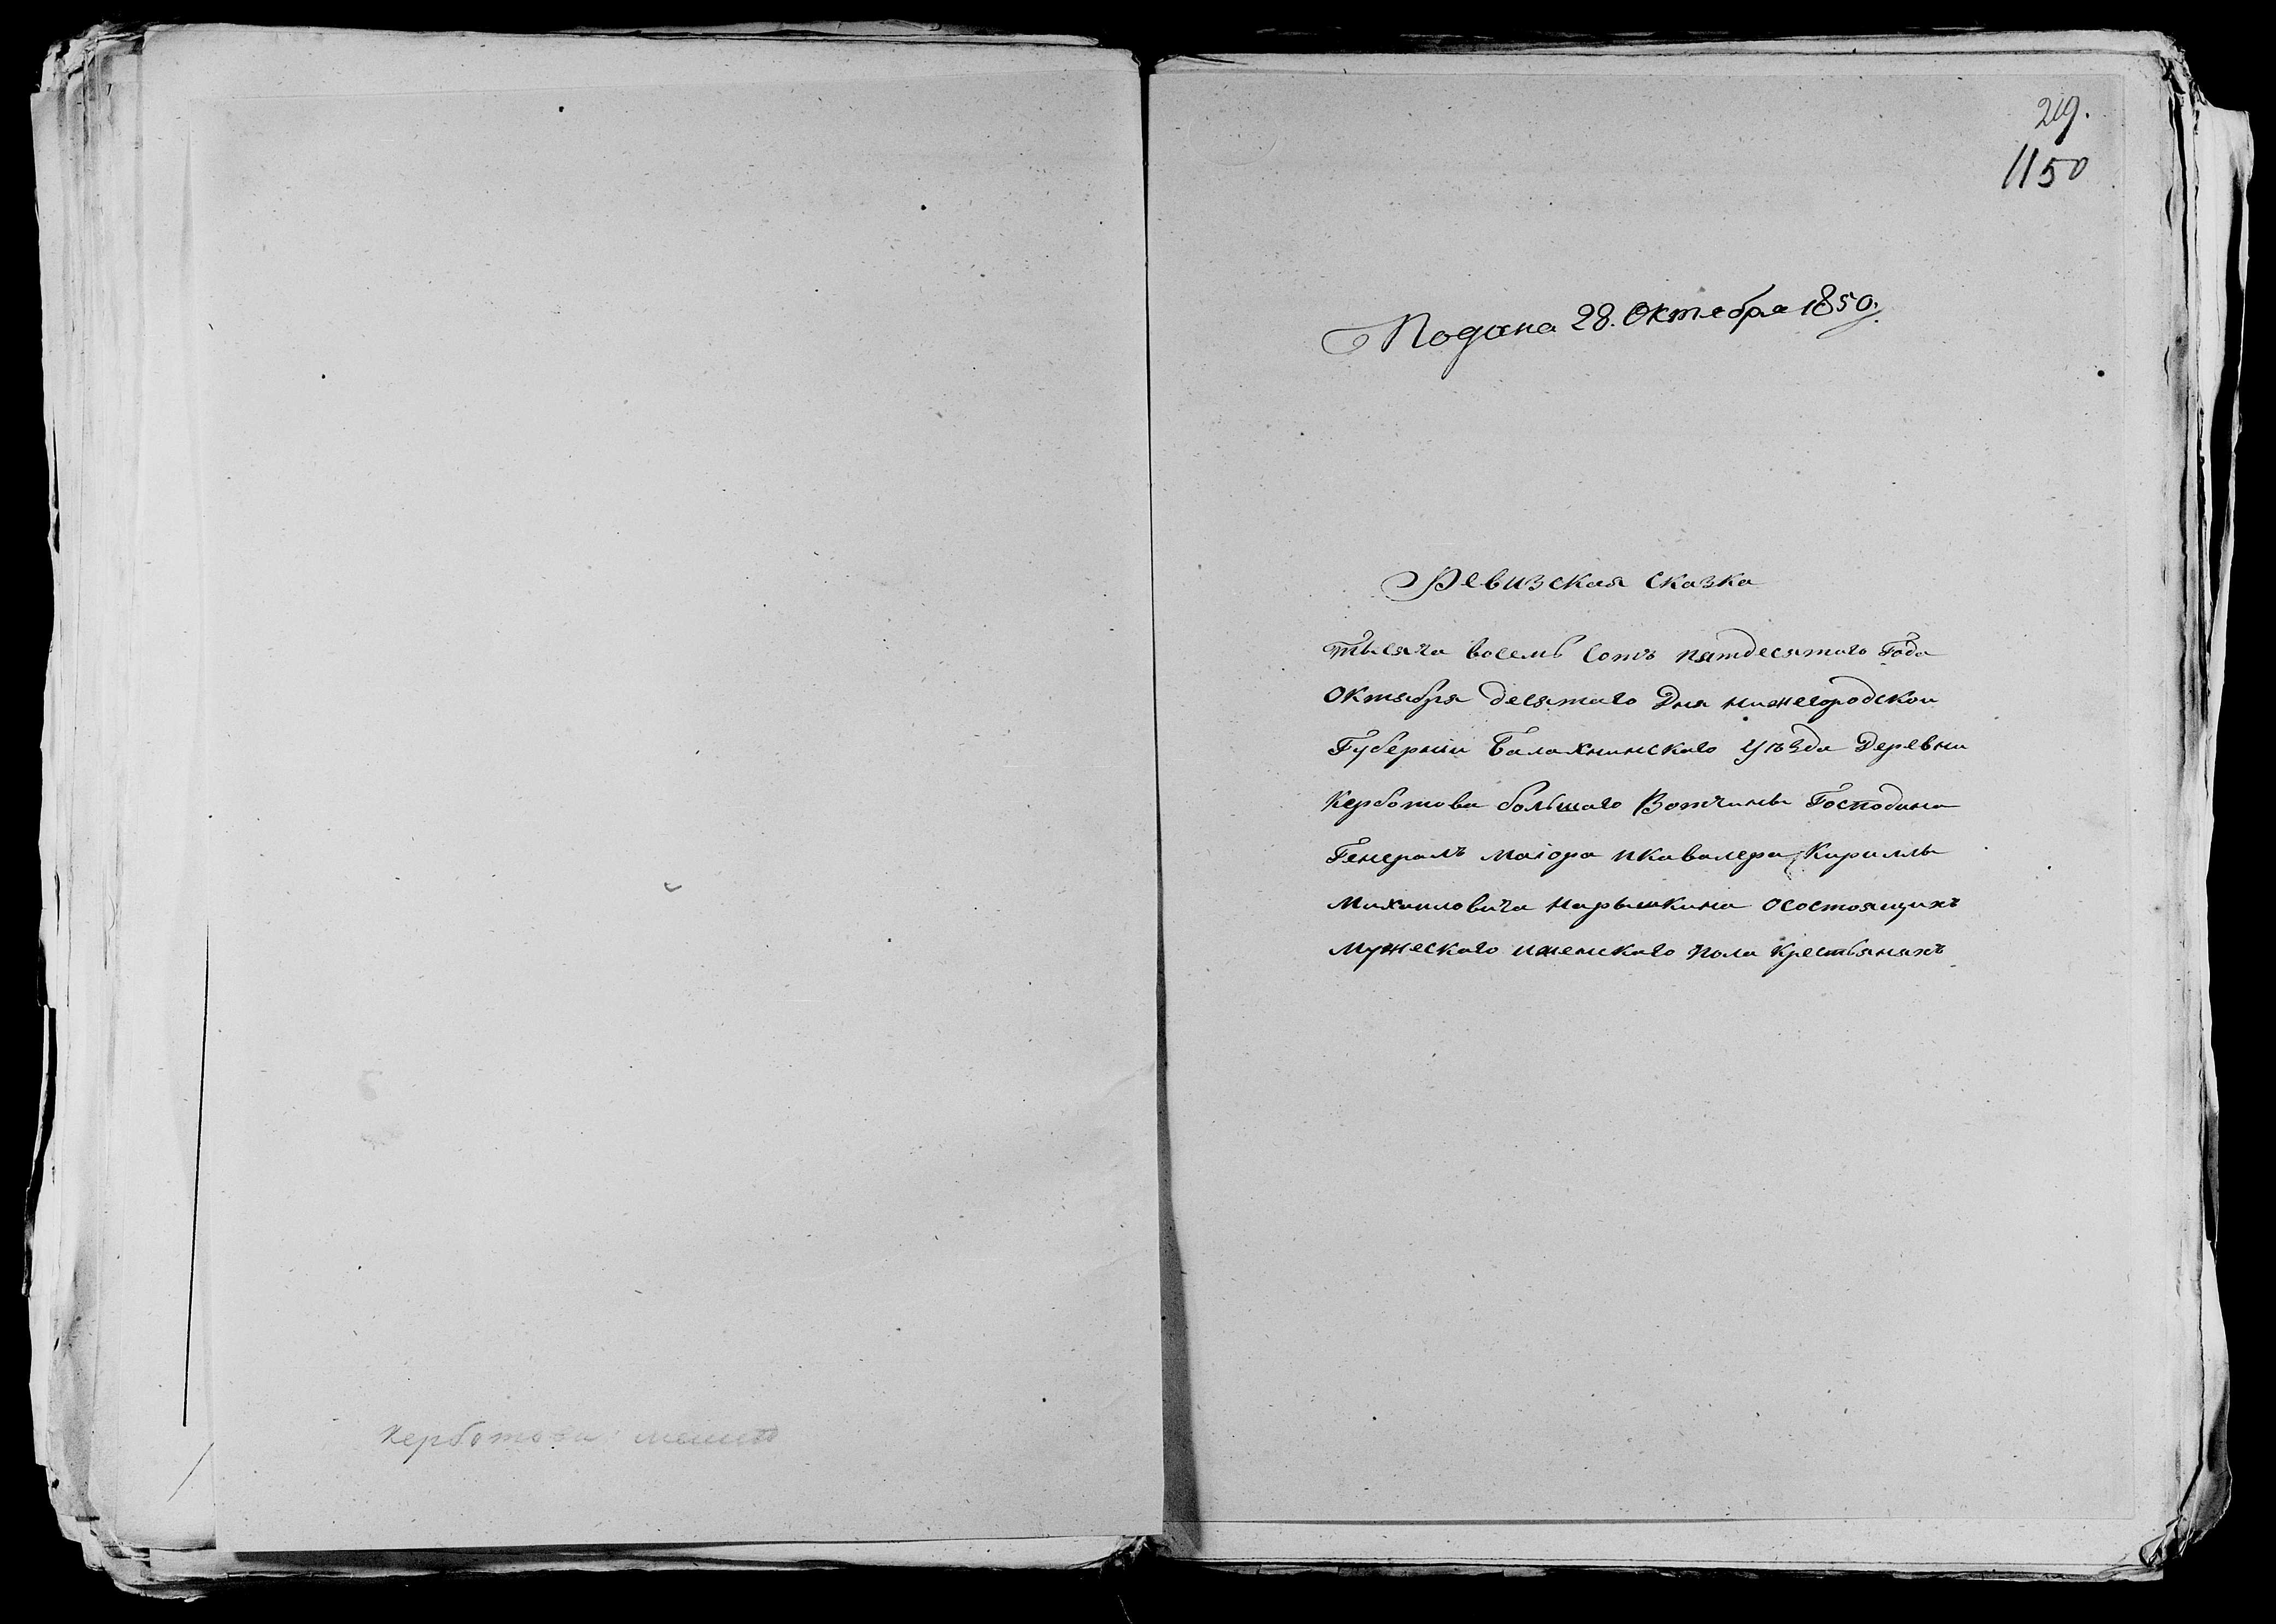 Керботова менш
219.
1150
Подана 28. Октября 1850 г.
Ревизская сказка
Тысяча восемь сотъ пятдесятого Года
Октября десятаго Дня нижегородской
Губернии Балахнинскаго уѣзда Деревни
Керботова большаго Вотчины Господина
Генералъ маіора икавалера Кириллы
Михаиловича нарышкина осостоящихъ
мужескаго иженскаго пола крестьянахъ